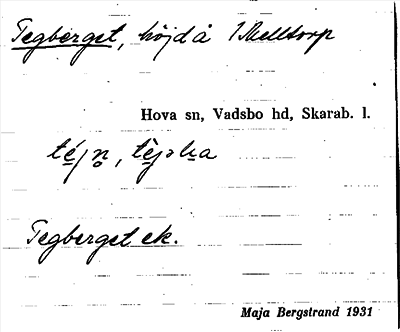 Tegberget, höjd å 1 Skelltorp
Hova sn, Vadsbo hd, Skarab. l.
Tegberget ek.
Maja Bergstrand 1931